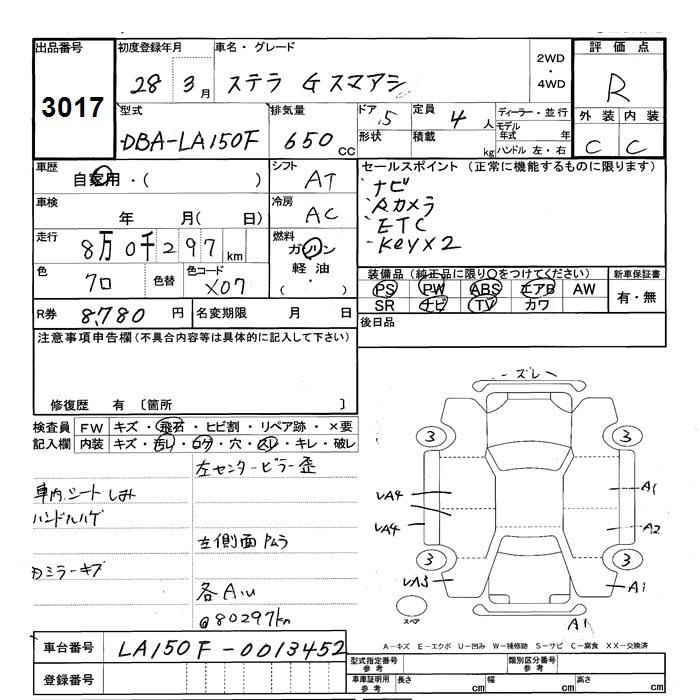 出品番号
3017
初度登録年月
28 3月
車名・グレード
ステラ G スマアシ
2WD
・
4WD
評価点
R
型式
DBA-LA150F
排気量
650 cc
ドア 5
形状
定員 4 人
積載 kg
ディーラー・並行
モデル年式 年
ハンドル 左・右
外装 内装
C C
車歴
自家用・( )
シフト
AT
セールスポイント (正常に機能するものに限ります)
ナビ
Rカメラ
ETC
Key×2
車検
年 月( 日)
冷房
AC
走行
8万0千297 km
燃料
ガソリン
軽油
・
色
クロ
色替
色コード
X07
装備品 (純正品に限り○をつけてください)
新車保証書
PS PW ABS エアB AW
SR ナビ TV カワ
有・無
R券 8,780 円
名変期限 月 日
後日品
注意事項申告欄(不具合内容等は具体的に記入して下さい)
修復歴 有 〔箇所 〕
検査員記入欄
FW キズ・飛石・ヒビ割・リペア跡・×要
内装 キズ・汚レ・コゲ・穴・スレ・キレ・破レ
左センターピラー歪
車内.シートしみ
ハンドルハゲ
左側面PAムラ
Dミラーキズ
各A.U
@80297km
ズレ
3 3
UA4
UA4
A1
A2
3 3
UA3
A1
スペア
A1
A-キズ E-エクボ U-凹み W-補修跡 S-サビ C-腐食 XX-交換済
車台番号
LA150F-0013452
登録番号
型式指定番号
参考
類別区分番号
参考
車庫証明用
参考
長さ cm
幅 cm
高さ cm